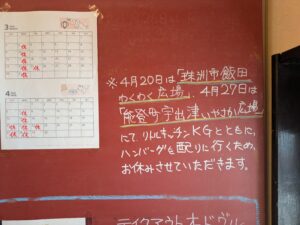 3
休
休
休 休
休
4
休
休 休 休
休
休
※4月20日は「珠洲市飯田
わくわく広場」、4月27日は
「能登町宇出津いやさか広場」
にて、リトルキッチンKGとともに、
ハンバーグを配りに行くため、
お休みさせていただきます。
テイクアウトオードヴル